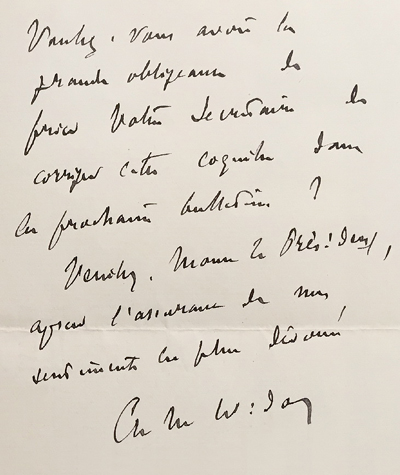 Veuillez, vous avoir la
grande obligeance de
prier votre Secrétaire de
corriger cette coquille dans
le prochain bulletin ?
Veuillez, Mons le Président,
agréer l'assurance de mes
sentiments les plus dévoués
Ch M Widor